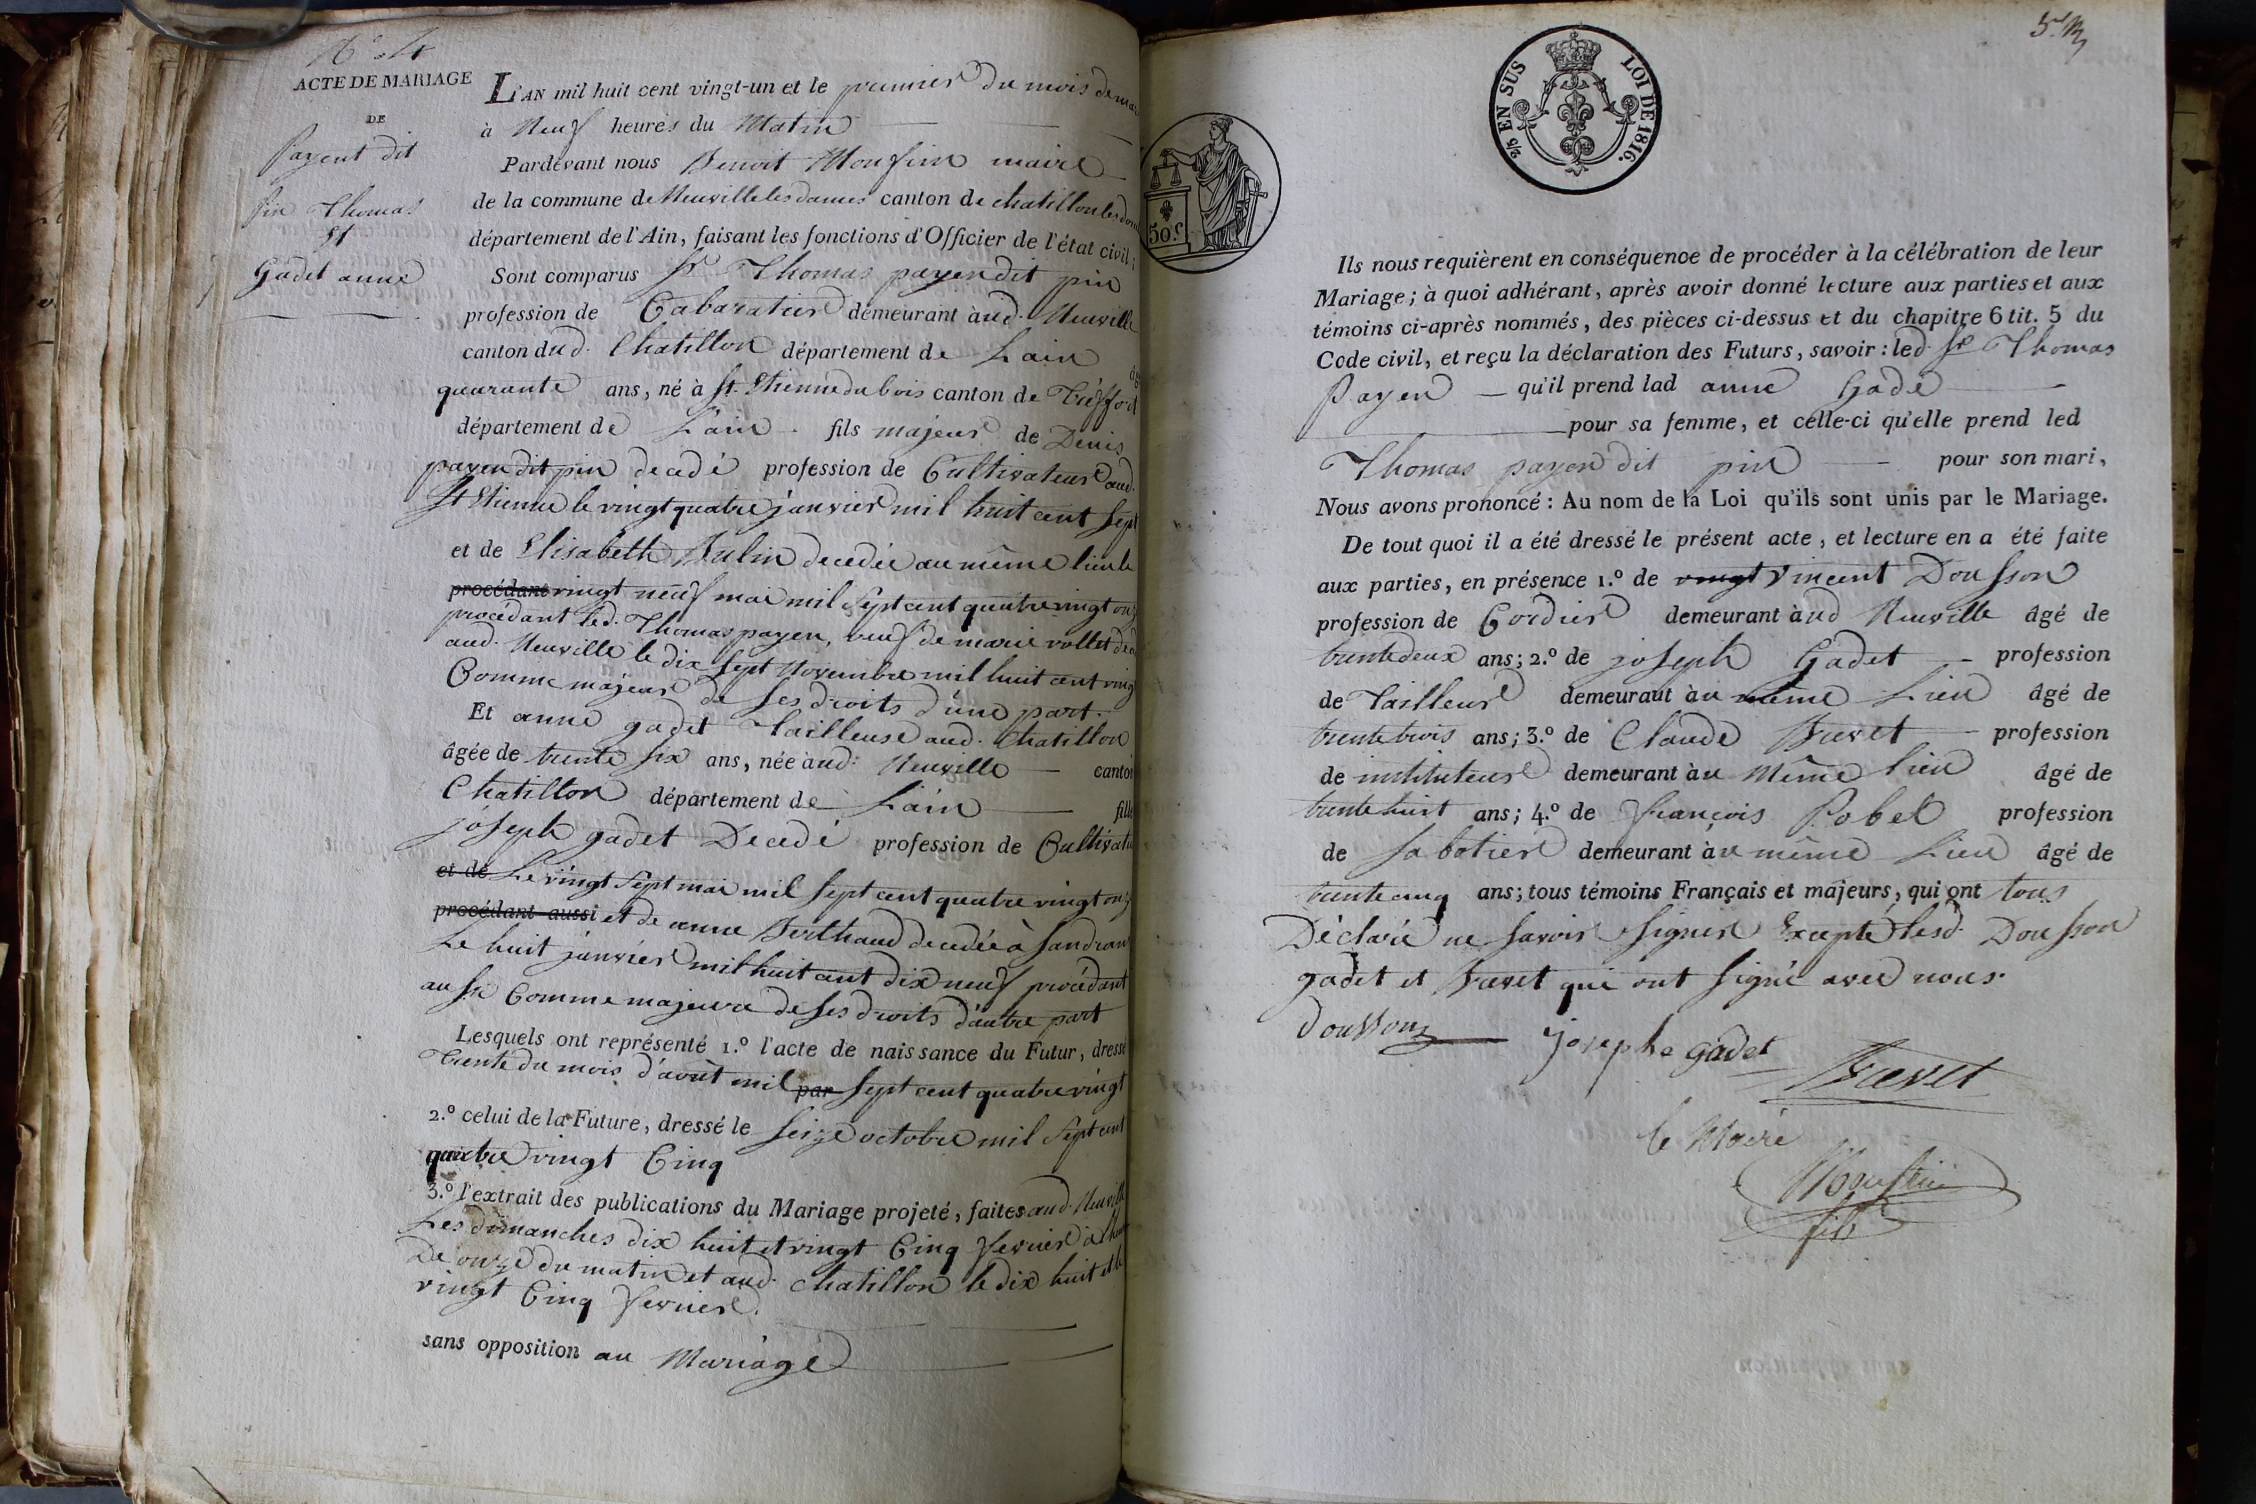 N.° 4
ACTE DE MARIAGE
DE
Payent dit
pin Thomas
Et
Gadet anne
L'AN mil huit cent vingt-un et le premier du mois de mar
à Neuf heures du Matin
Pardevant nous Benoit Monfin maire
de la commune de Neuville les dames canton de chatillon les dom
département de l'Ain, faisant les fonctions d'Officier de l'état civil;
Sont comparus Sr Thomas payen dit pin
profession de Cabaratier demeurant àud. Neuville
canton dud. Chatillon département de Lain
quarante ans, né à St. Etienne du bois canton de Treffort
département de Lain fils majeur de Denis
payen dit pin decedé profession de Cultivateur aud.
St Etienne le vingt quatre janvier mil huit cent sept
et de Elisabeth Bulin decedée au même lieu le
procédant vingt neuf mai mil sept cent quatre vingt onz
procédant led. Thomas payen, veuf de marie vollet déc
aud. Neuville le dix sept Novembre mil huit cent ving
Comme majeur de ses droits d'une part.
Et anne gadet Tailleuse aud. Chatillon
âgée de trente six ans, née àud: Neuville canton
Chatillon département de Lain fille
joseph gadet Decedé profession de Cultivateu
et de Le vingt sept mai mil sept cent quatre vingt onz
procédant aussi et de anne Berthaud decedée à Sandran
Le huit janvier mil huit cent dix neuf procédant
aussi Comme majeure de ses droits d'autre part
Lesquels ont représenté 1.° l'acte de naissance du Futur, dressé
Trente du mois d'avout mil par sept cent quatre vingt
2.° celui de la Future, dressé le seize octobre mil sept cent
quatre vingt Cinq
3.° l'extrait des publications du Mariage projeté, faites aud. Neuville
Les dimanches dix huit et vingt Cinq fevrier à l'heure
De onze du matin et aud. Chatillon le dix huit et le
vingt Cinq fevrier.
sans opposition au Mariage
50.c
2/5 EN SUS LOI DE 1816.
Ils nous requièrent en conséquence de procéder à la célébration de leur
Mariage; à quoi adhérant, après avoir donné lecture aux parties et aux
témoins ci-après nommés, des pièces ci-dessus et du chapitre 6 tit. 5 du
Code civil, et reçu la déclaration des Futurs, savoir: led. Sr Thomas
Payen qu'il prend lad anne Gade
pour sa femme, et celle-ci qu'elle prend led
Thomas payen dit pin pour son mari,
Nous avons prononcé: Au nom de la Loi qu'ils sont unis par le Mariage.
De tout quoi il a été dressé le présent acte, et lecture en a été faite
aux parties, en présence 1.° de vingt Vincent Dousson
profession de Cordier demeurant àud Neuville âgé de
trente deux ans; 2.° de joseph Gadet profession
de Tailleur demeurant àu même Lieu âgé de
trente trois ans; 3.° de Claude Fævet profession
de instituteur demeurant àu Même lieu âgé de
trente huit ans; 4.° de françois Pobel profession
de Sabotier demeurant àu même Lieu âgé de
trente cinq ans; tous témoins Français et majeurs, qui ont tous
Déclaré ne savoir signer Excepté lesd. Dousson
gadet et Fævet qui ont signé avec nous.
Dousson Josephe gadet
Fævet
le Maire
Monfin
fils